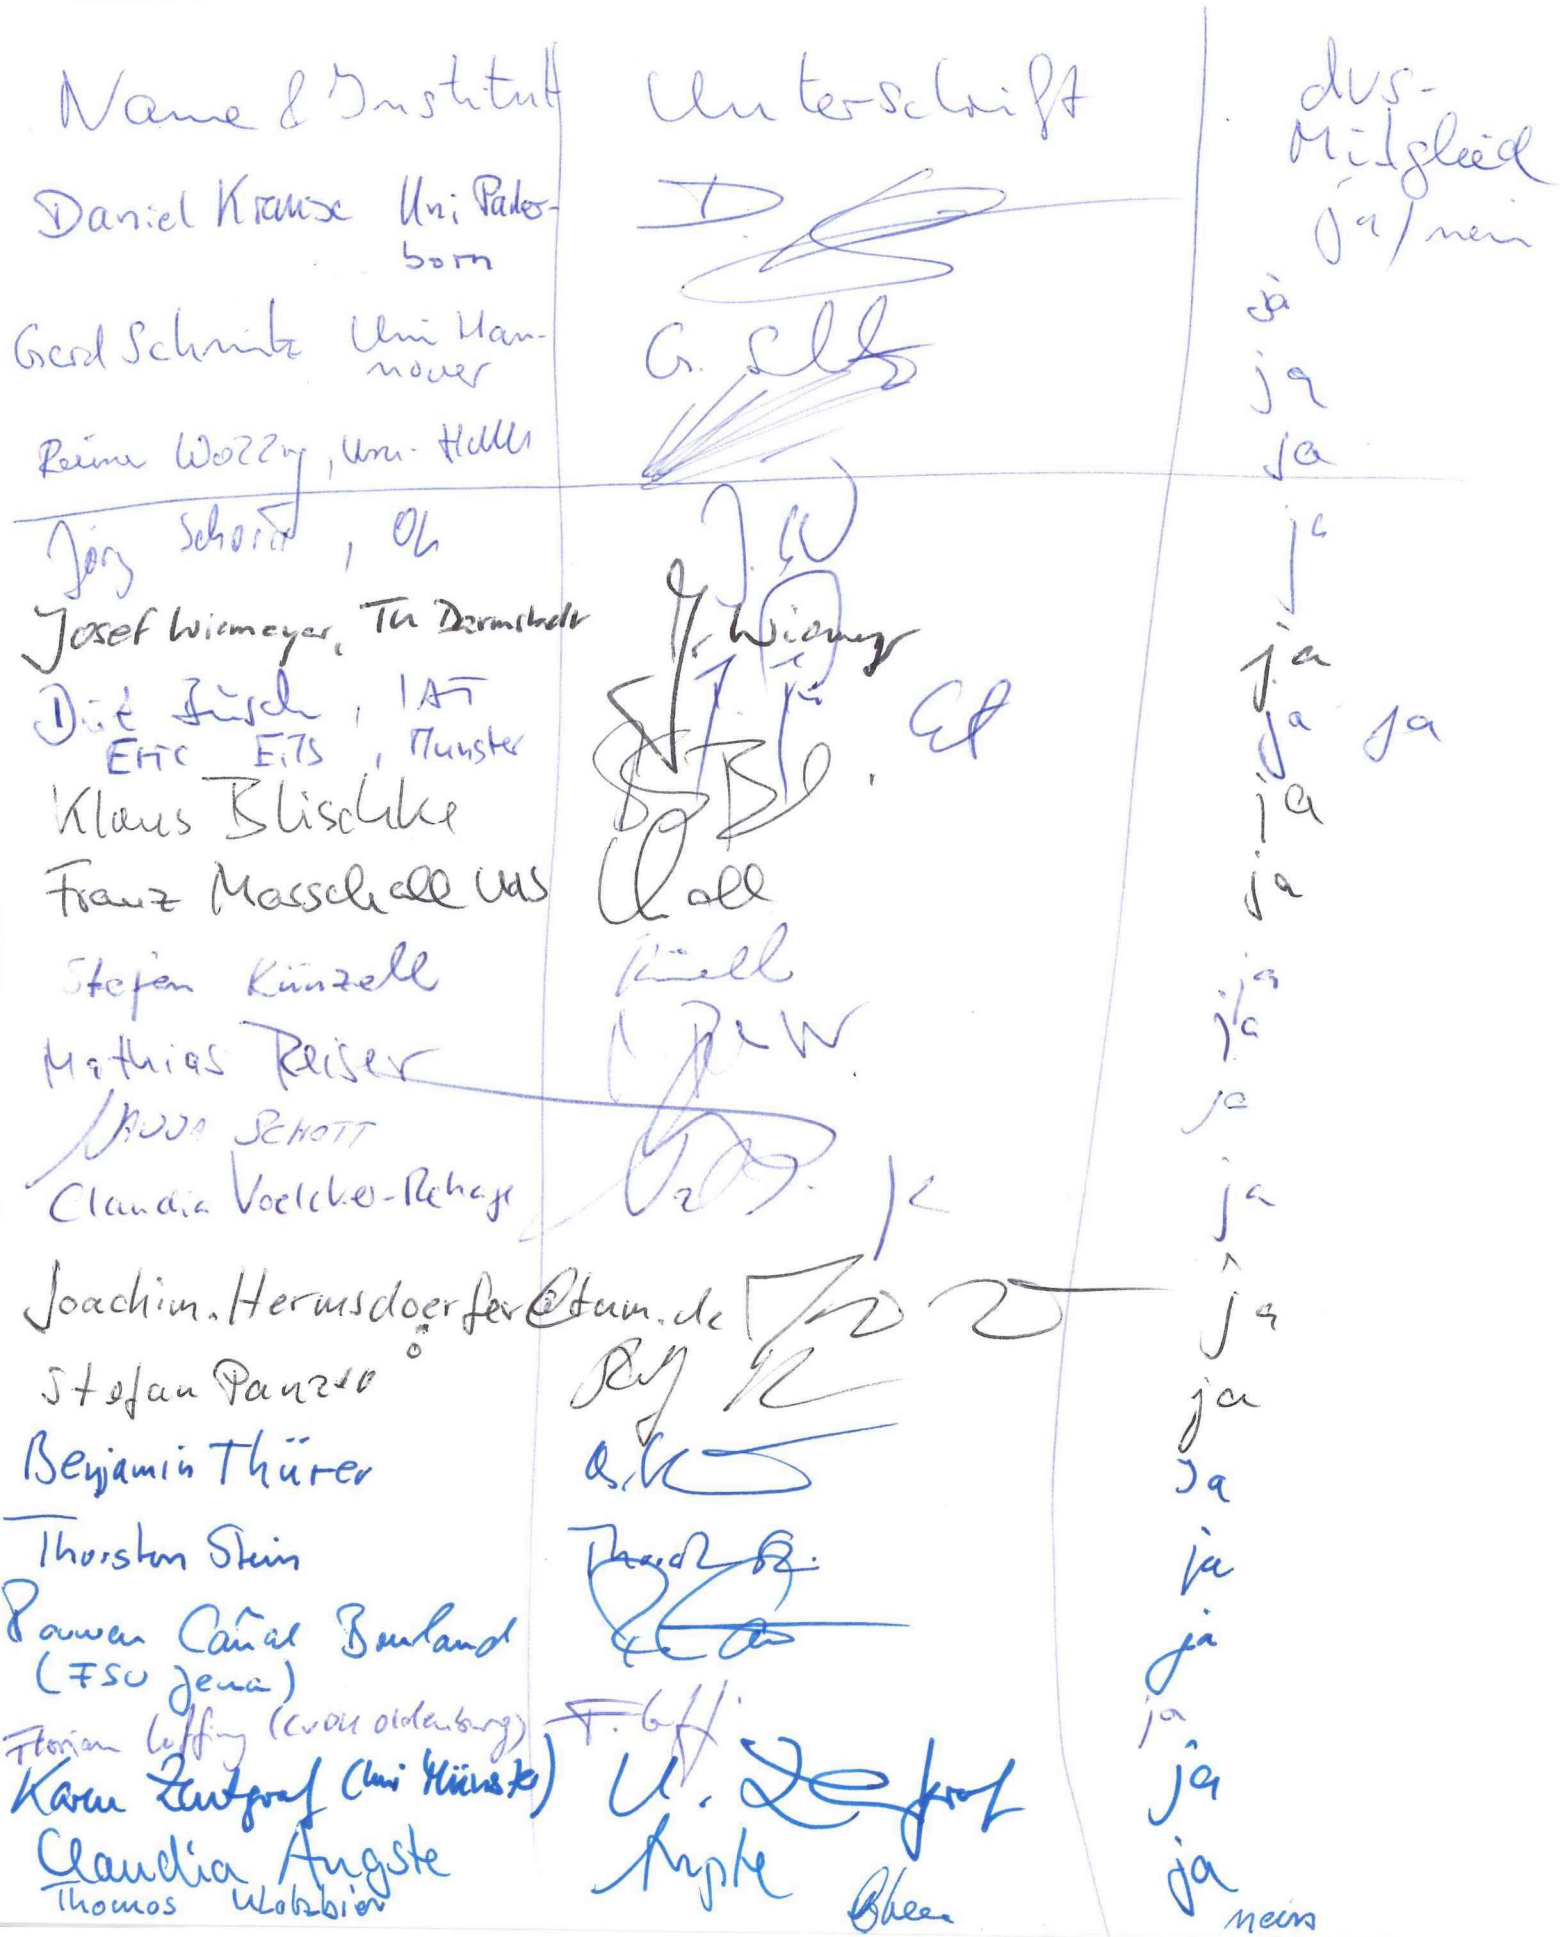 Name & Institut Unterschrift dvs-
Mitglied
ja/nein
Daniel Krause Uni Pader-
born
D.
ja
Gerd Schmitz Uni Han-
nover
G.
ja
Reiner Wollny, Uni Halle
ja
Jörg Schorer, OL
ja
Josef Wiemeyer, TU Darmstadt J. Wiemeyer
ja
Dirk Büsch, IAT
ja ja
Eric Eils, Münster
Klaus Blischke
ja
Franz Marschall UdS
ja
Stefan Künzell Künzell
ja
Mathias Reiser
ja
Nadja Schott
ja
Claudia Voelcker-Rehage
ja
Joachim.Hermsdoerfer@tum.de
ö
ja
Stefan Panzer
ja
Benjamin Thürer
Ja
Thorsten Stein
ja
Rouwen Cañal Bruland
(FSU Jena)
ja
Florian Loffing (CvOU Oldenburg) F. Loff.
ja
Karen Zentgraf (Uni Münster) K. Zentgraf
ja
Claudia Augste Augste
ja
Thomas Klotzbier
nein